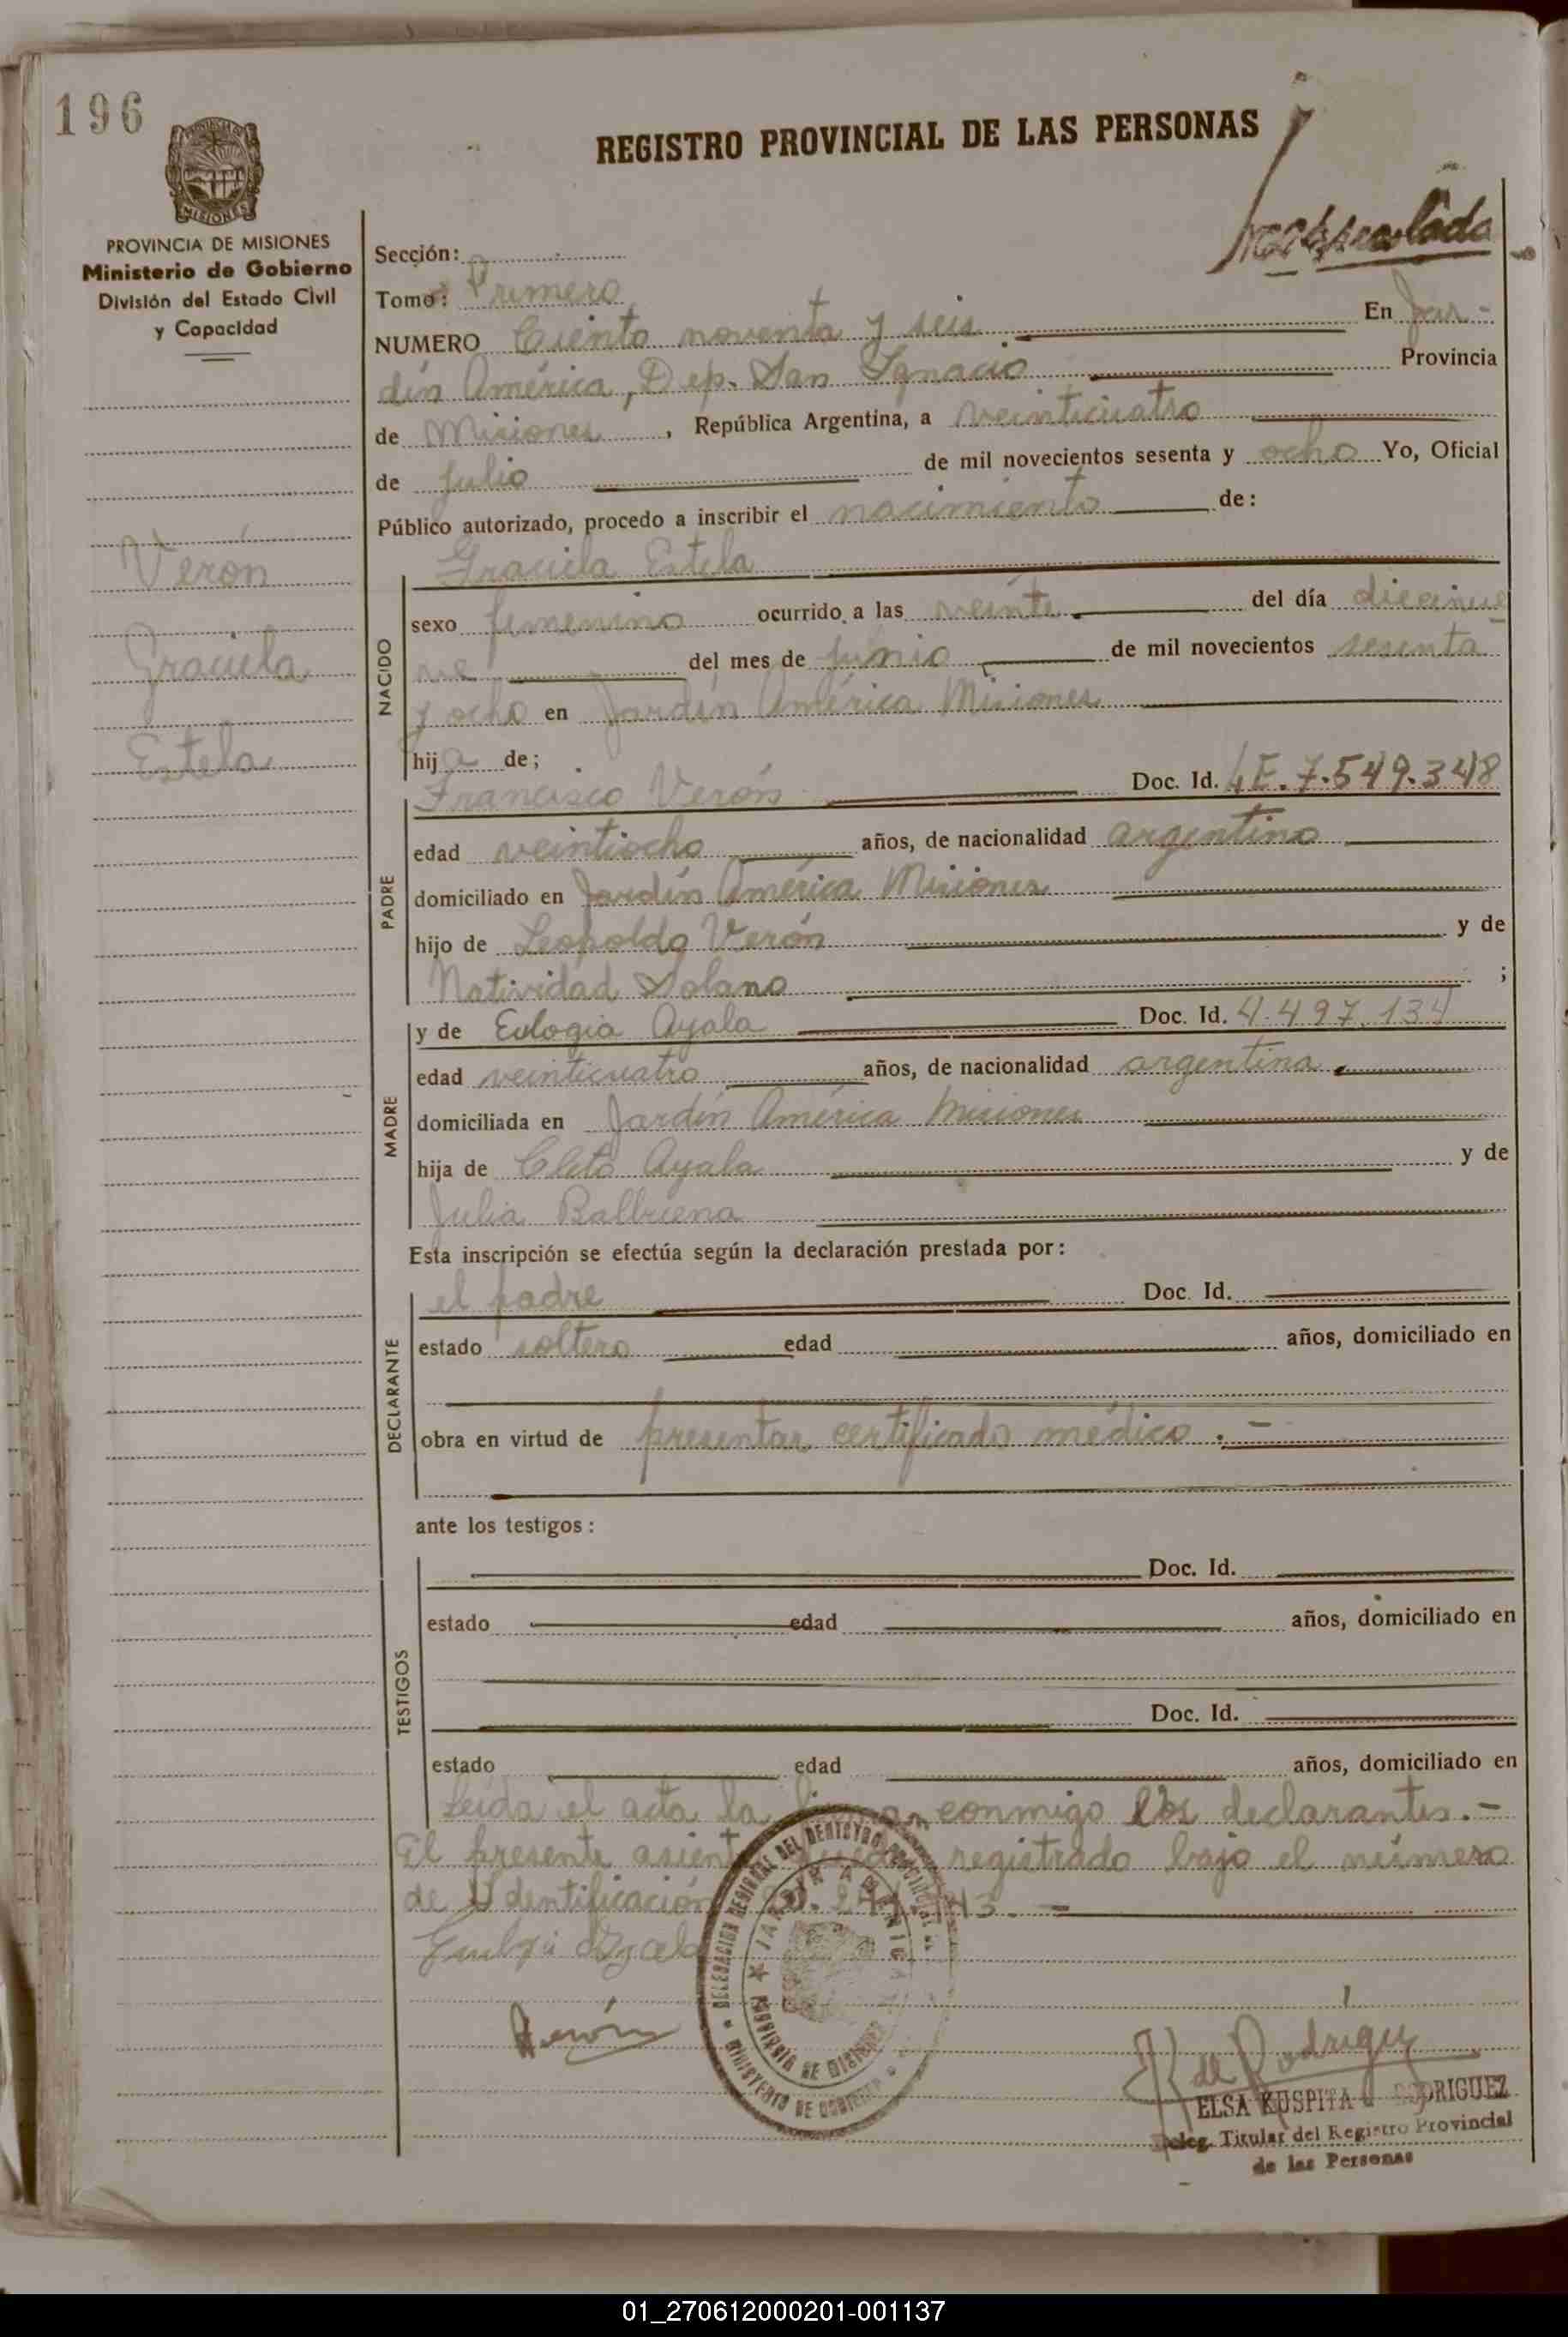 196
REGISTRO PROVINCIAL DE LAS PERSONAS
PROVINCIA DE
MISIONES
PROVINCIA DE MISIONES
Ministerio de Gobierno
División del Estado Civil
y Capacidad
Verón
Graciela
Estela
Sección:
Tomo: Primero
NUMERO Ciento noventa y seis En Jar-
dín América, Dep. San Ignacio Provincia
de Misiones, República Argentina, a veinticuatro
de Julio de mil novecientos sesenta y ocho Yo, Oficial
Público autorizado, procedo a inscribir el nacimiento de:
Graciela Estela
NACIDO
sexo femenino ocurrido a las veinte del día diecinue
ve del mes de junio de mil novecientos sesenta
y ocho en Jardín América Misiones
hija de;
PADRE
Francisco Verón Doc. Id. L.E. 7.549.348
edad veintiocho años, de nacionalidad argentino
domiciliado en Jardín América Misiones
hijo de Leopoldo Verón y de
Natividad Solano ;
MADRE
y de Eulogia Ayala Doc. Id. 4.497.134
edad veinticuatro años, de nacionalidad argentina
domiciliada en Jardín América Misiones
hija de Cleto Ayala y de
Julia Balbuena
Esta inscripción se efectúa según la declaración prestada por:
DECLARANTE
el padre Doc. Id.
estado soltero edad años, domiciliado en
obra en virtud de presentar certificado médico.-
ante los testigos:
TESTIGOS
Doc. Id.
estado edad años, domiciliado en
Doc. Id.
estado edad años, domiciliado en
Leída el acta la conmigo los declarantes.-
El presente registrado bajo el número
de Identificación
Verón
DELEGACION REGIONAL DEL REGISTRO PROVINCIAL
JARDIN AMERICA
PROVINCIA DE MISIONES
MINISTERIO DE GOBIERNO
de Rodriguez
ELSA KUSPITA RODRIGUEZ
Deleg. Titular del Registro Provincial
de las Personas
01_270612000201-001137